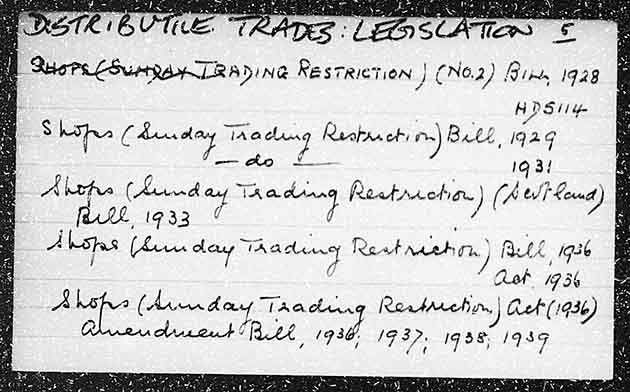 DISTRIBUTIVE TRADES: LEGISLATION 5
SHOPS (SUNDAY TRADING RESTRICTION) (NO.2) BILL, 1928
HD5114
Shops (Sunday Trading Restriction) Bill, 1929
— do — 1931
Shops (Sunday Trading Restriction) (Scotland)
Bill, 1933
Shops (Sunday Trading Restriction) Bill, 1936
Act, 1936
Shops (Sunday Trading Restriction) Act (1936)
Amendment Bill, 1936; 1937; 1938; 1939